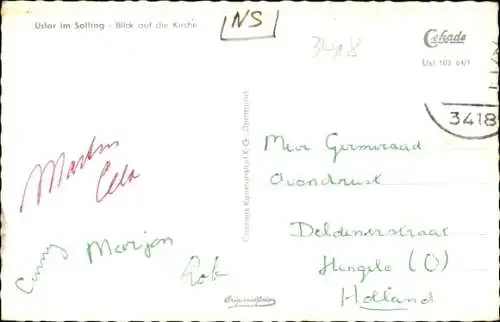 Uslar im Solling - Blick auf die Kirche
NS
3418
Cekade
Usl 103 64/1
3418
Cramers Kunstanstalt K.G., Dortmund
Martin
Cela
Conny Marijon
Rob
Originalfoto
Meir Germeraad
Avondrust
Deldenerstraat
Hengelo (O)
Holland